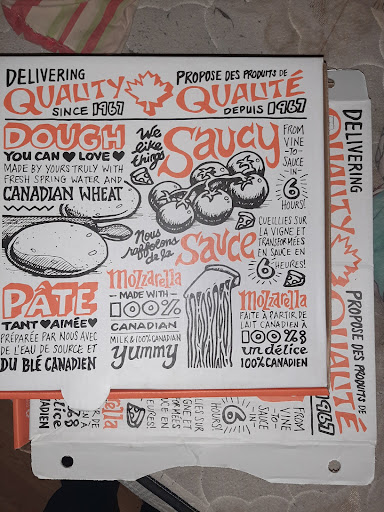 DELIVERING
QUALITY
SINCE 1967
PROPOSE DES PRODUITS DE
QUALITÉ
DEPUIS 1967
DOUGH
YOU CAN ♥ LOVE ♥
MADE BY YOURS TRULY WITH
FRESH SPRING WATER AND
CANADIAN WHEAT
We
like
things
Saucy
FROM
VINE
-TO-
SAUCE
-IN-
6
HOURS!
Nous
raffolons
de la
Sauce
CUEILLIES SUR
LA VIGNE ET
TRANSFORMÉES
EN SAUCE EN
6 HEURES!
PÂTE
TANT ♥ AIMÉE ♥
PRÉPARÉE PAR NOUS AVEC
DE L'EAU DE SOURCE ET
DU BLÉ CANADIEN
Mozzarella
- MADE WITH -
100%
CANADIAN
MILK & 100% CANADIAN
yummy
Mozzarella
FAITE À PARTIR DE
LAIT CANADIEN À
100% &
un délice
100% CANADIEN
DELIVERING
QUALITY
PROPOSE DES PRODUITS DE
QUALITÉ
1967
FROM
VINE
-TO-
SAUCE
-IN-
6
HOURS!